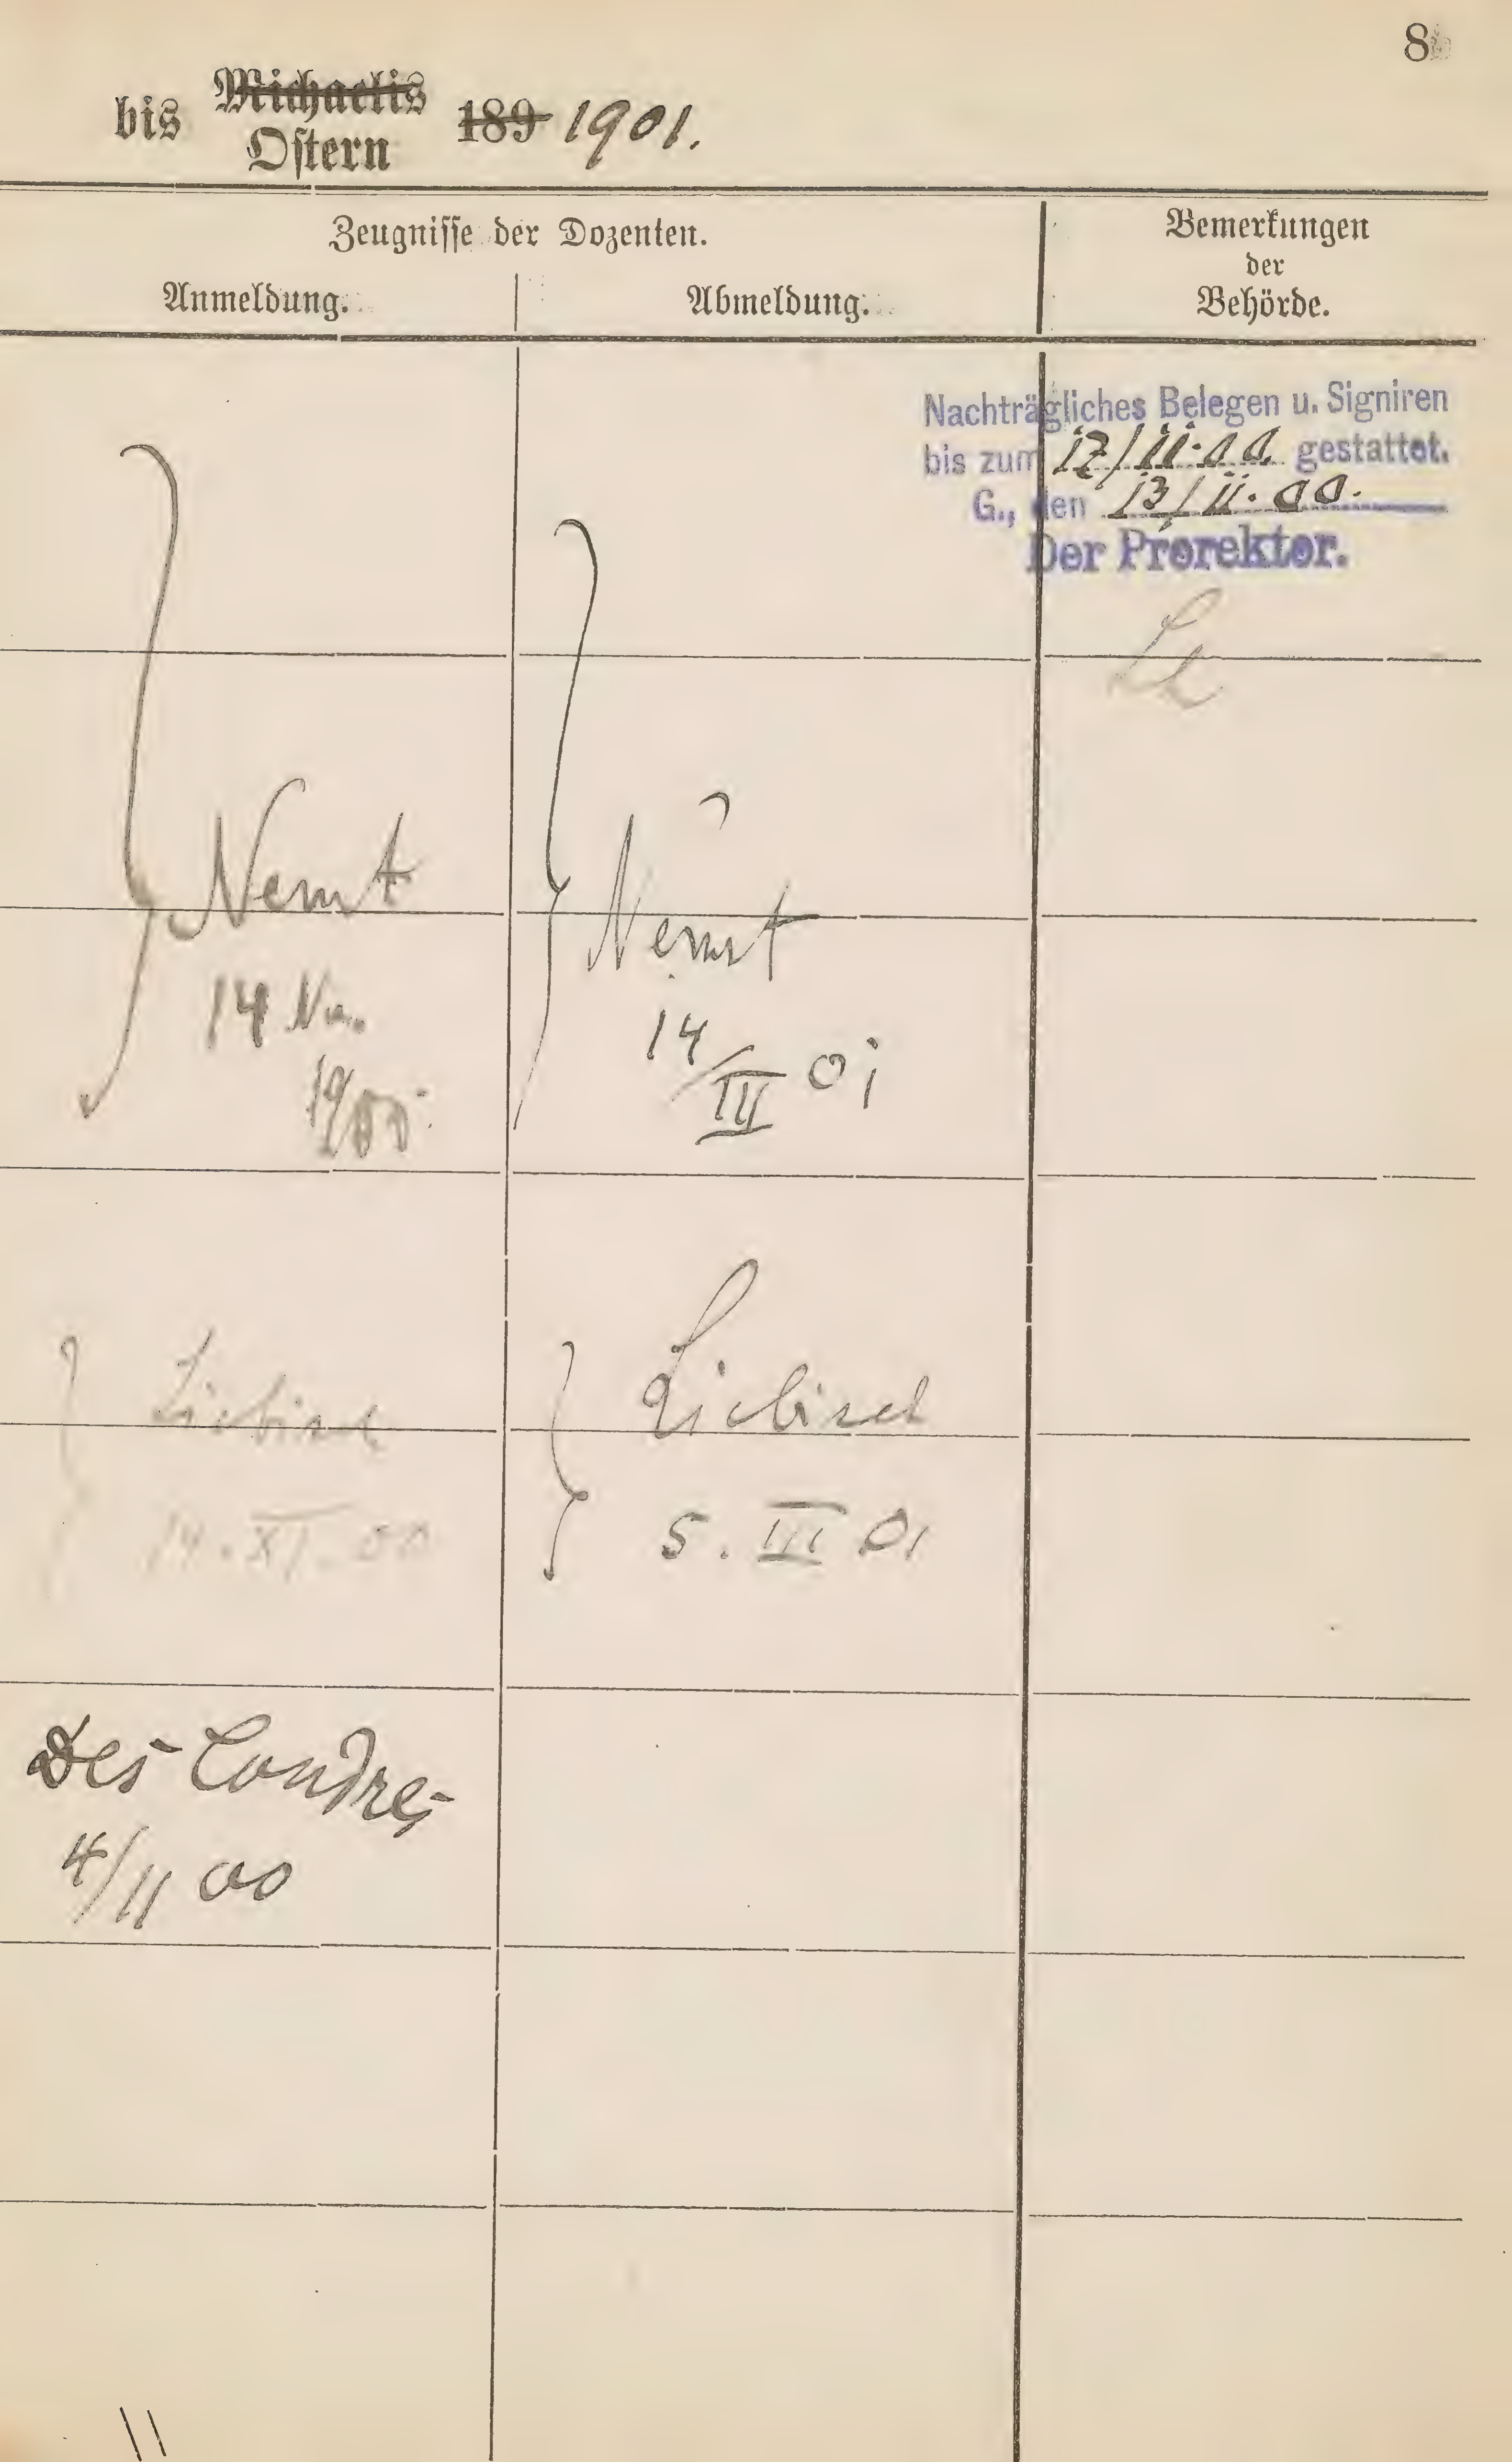 8
bis Michaelis
Ostern 189 1901.
Zeugnisse der Dozenten.
Anmeldung.
Abmeldung.
Bemerkungen
der
Behörde.
Nachträgliches Belegen u. Signiren
bis zum 17/11.00. gestattet.
G., den 13/11.00.
Der Prorektor.
Nernst
14 Nov.
1900.
Nernst
14/III 01
Liebisch
14.XI.00
Liebisch
5.III 01
Des Coudres
4/11 00